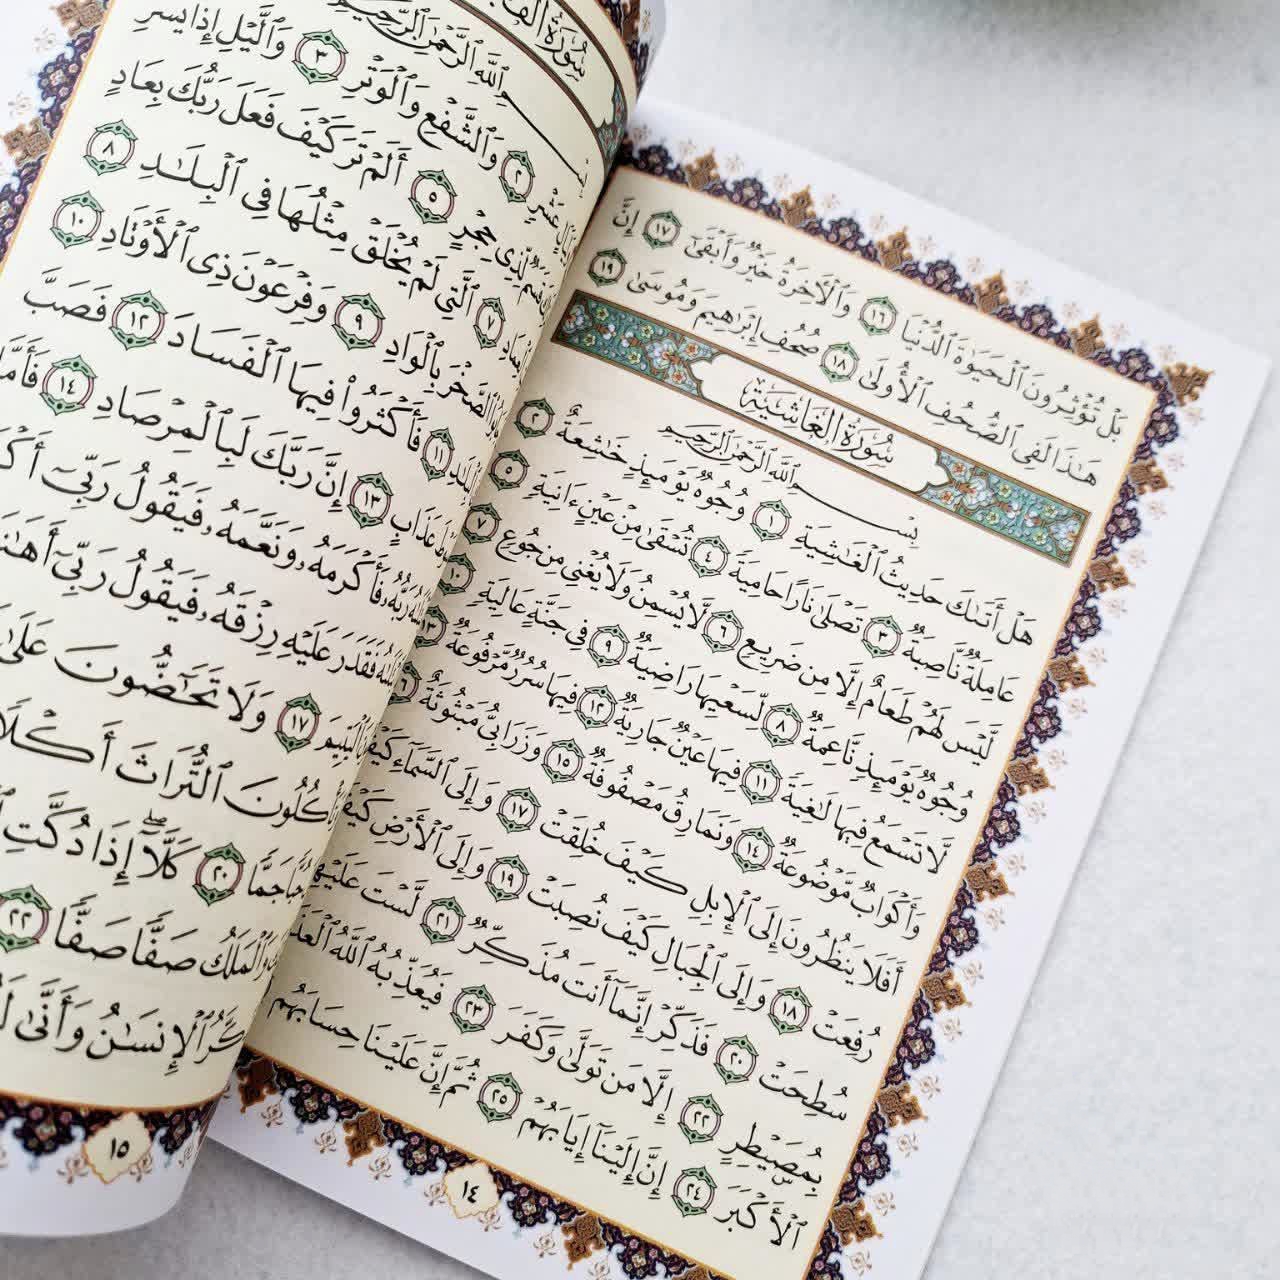 بَلْ تُؤْثِرُونَ ٱلْحَيَوٰةَ ٱلدُّنْيَا ١٦ وَٱلْأٓخِرَةُ خَيْرٌ وَأَبْقَىٰٓ ١٧ إِنَّ
هَـٰذَا لَفِى ٱلصُّحُفِ ٱلْأُولَىٰ ١٨ صُحُفِ إِبْرَٰهِيمَ وَمُوسَىٰ ١٩
سُورَةُ الغَاشِيَةِ
بِسْمِ ٱللَّهِ ٱلرَّحْمَٰنِ ٱلرَّحِيمِ
هَلْ أَتَىٰكَ حَدِيثُ ٱلْغَـٰشِيَةِ ١ وُجُوهٌ يَوْمَئِذٍ خَـٰشِعَةٌ ٢
عَامِلَةٌ نَّاصِبَةٌ ٣ تَصْلَىٰ نَارًا حَامِيَةً ٤ تُسْقَىٰ مِنْ عَيْنٍ ءَانِيَةٍ ٥
لَّيْسَ لَهُمْ طَعَامٌ إِلَّا مِن ضَرِيعٍ ٦ لَّا يُسْمِنُ وَلَا يُغْنِى مِن جُوعٍ ٧
وُجُوهٌ يَوْمَئِذٍ نَّاعِمَةٌ ٨ لِّسَعْيِهَا رَاضِيَةٌ ٩ فِى جَنَّةٍ عَالِيَةٍ ١٠
لَّا تَسْمَعُ فِيهَا لَـٰغِيَةً ١١ فِيهَا عَيْنٌ جَارِيَةٌ ١٢ فِيهَا سُرُرٌ مَّرْفُوعَةٌ ١٣
وَأَكْوَابٌ مَّوْضُوعَةٌ ١٤ وَنَمَارِقُ مَصْفُوفَةٌ ١٥ وَزَرَابِىُّ مَبْثُوثَةٌ
أَفَلَا يَنظُرُونَ إِلَى ٱلْإِبِلِ كَيْفَ خُلِقَتْ ١٧ وَإِلَى ٱلسَّمَآءِ كَيْفَ
رُفِعَتْ ١٨ وَإِلَى ٱلْجِبَالِ كَيْفَ نُصِبَتْ ١٩ وَإِلَى ٱلْأَرْضِ كَيْفَ
سُطِحَتْ ٢٠ فَذَكِّرْ إِنَّمَآ أَنتَ مُذَكِّرٌ ٢١ لَّسْتَ
بِمُصَيْطِرٍ ٢٢ إِلَّا مَن تَوَلَّىٰ وَكَفَرَ ٢٣ فَيُعَذِّبُهُ ٱللَّهُ
ٱلْأَكْبَرَ ٢٤ إِنَّ إِلَيْنَآ إِيَابَهُمْ ٢٥ ثُمَّ إِنَّ عَلَيْنَا حِسَابَهُم
١٤
سُورَةُ
ٱللَّهِ ٱلرَّحْمَٰنِ ٱلرَّحِيمِ
عَشْرٍ ٢ وَٱلشَّفْعِ وَٱلْوَتْرِ ٣ وَٱلَّيْلِ إِذَا يَسْرِ
لِّذِى حِجْرٍ ٥ أَلَمْ تَرَ كَيْفَ فَعَلَ رَبُّكَ بِعَادٍ
٧ ٱلَّتِى لَمْ يُخْلَقْ مِثْلُهَا فِى ٱلْبِلَـٰدِ ٨
ٱلصَّخْرَ بِٱلْوَادِ ٩ وَفِرْعَوْنَ ذِى ٱلْأَوْتَادِ ١٠
١١ فَأَكْثَرُوا۟ فِيهَا ٱلْفَسَادَ ١٢ فَصَبَّ
عَذَابٍ ١٣ إِنَّ رَبَّكَ لَبِٱلْمِرْصَادِ ١٤ فَأَمَّا
رَبُّهُۥ فَأَكْرَمَهُۥ وَنَعَّمَهُۥ فَيَقُولُ رَبِّىٓ
فَقَدَرَ عَلَيْهِ رِزْقَهُۥ فَيَقُولُ رَبِّىٓ
ٱلْيَتِيمَ ١٧ وَلَا تَحَـٰٓضُّونَ عَلَىٰ
ٱلتُّرَاثَ أَكْلًا
جَمًّا ٢٠ كَلَّآ إِذَا دُكَّتِ
وَٱلْمَلَكُ صَفًّا صَفًّا ٢٢
ٱلْإِنسَـٰنُ وَأَنَّىٰ
١٥